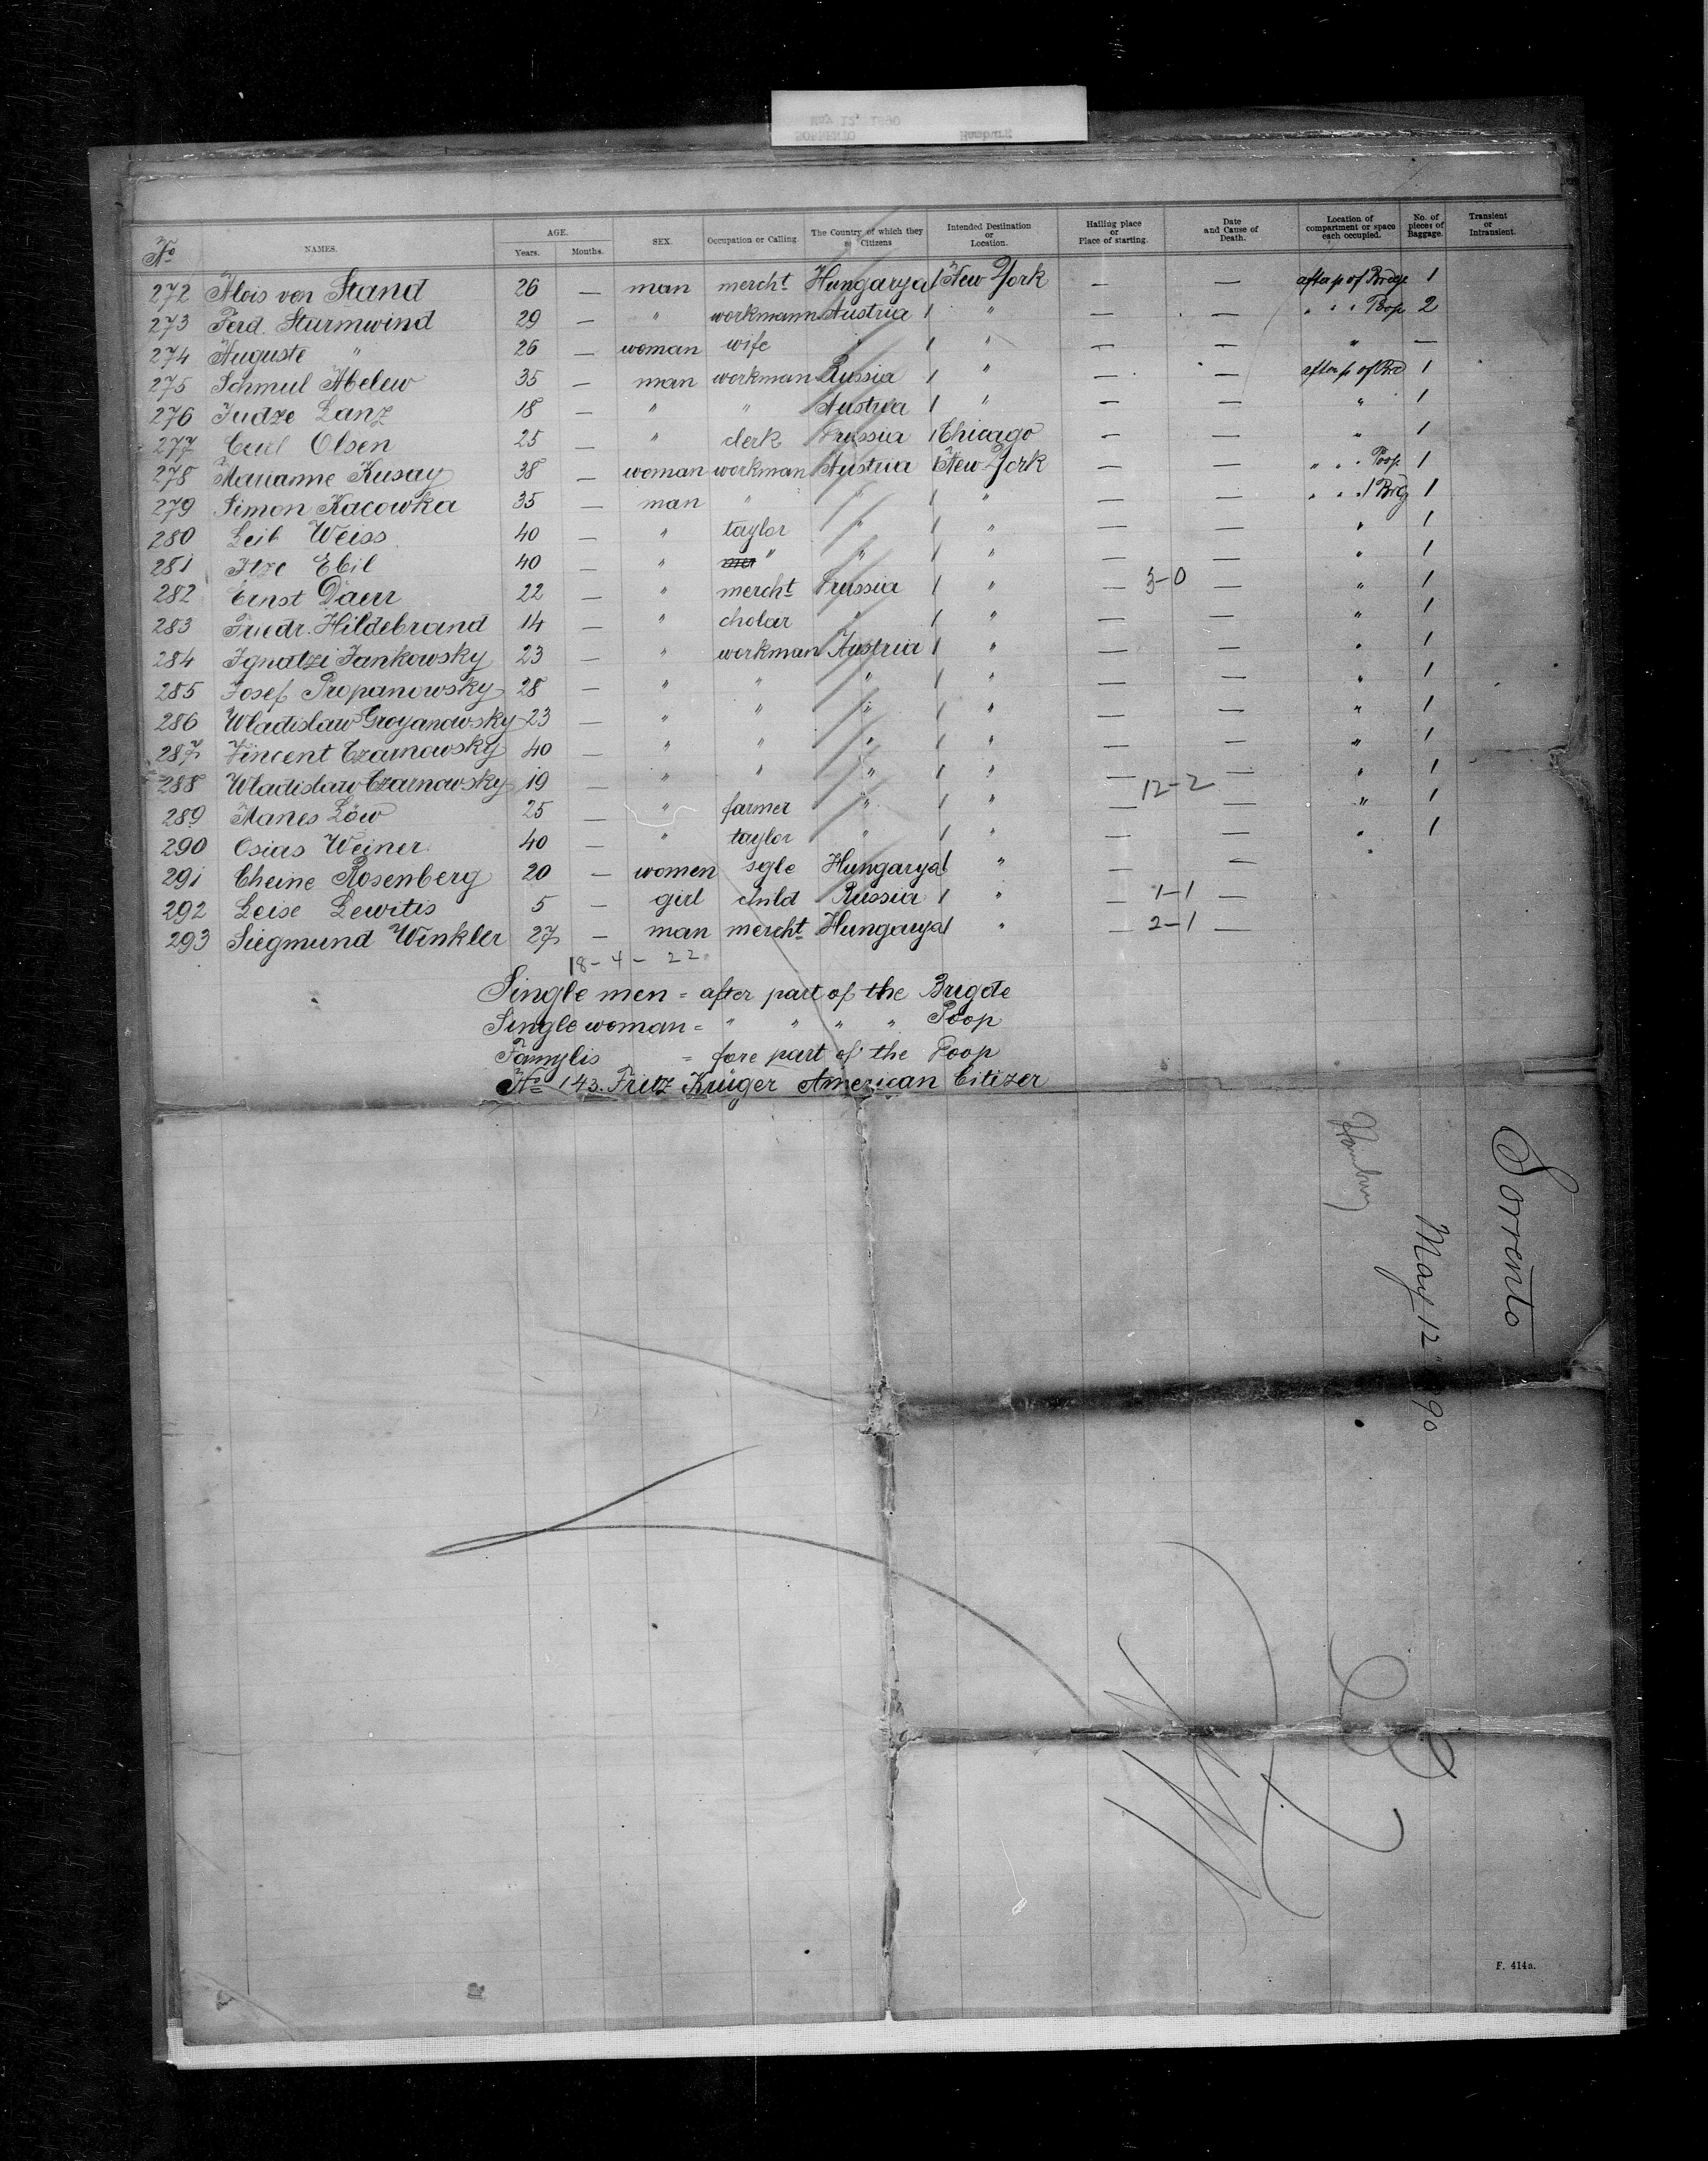 May 12, 1890
SORRENTO Hamburg
No NAMES. AGE. Years. Months. SEX. Occupation or Calling The Country of which they are Citizens Intended Destination or Location. Hailing place or Place of starting. Date and Cause of Death. Location of compartment or space each occupied. No. of pieces of Baggage. Transient or Intransient.
272 Alois von Stand 26 — man mercht Hungarya 1 New York — — after p of Bridge 1
273 Ferd. Sturmwind 29 — " workmann Austria 1 " — — " " " Poop 2
274 Auguste " 26 — woman wife " 1 " — — " —
275 Schmul Abelew 35 — man workman Russia 1 " — — after p of Bre 1
276 Judze Lanz 18 — " " Austria 1 " — — " 1
277 Carl Olsen 25 — " clerk Prussia 1 Chicago — — " 1
278 Marianne Kusay 38 — woman workman Austria 1 New York — — " " " Poop 1
279 Simon Kacowka 35 — man " " 1 " — — " " " Brg 1
280 Leib Weiss 40 — " taylor " 1 " — — " 1
281 Itze Ebil 40 — " mer " " 1 " — — " 1
282 Ernst Daerr 22 — " mercht Prussia 1 " — 3-0 — " 1
283 Friedr. Hildebrand 14 — " cholar " 1 " — — " 1
284 Ignatzi Jankowsky 23 — " workman Austria 1 " — — " 1
285 Josef Propanowsky 28 — " " " 1 " — — " 1
286 Wladislaw Groyanowsky 23 — " " " 1 " — — " 1
287 Vincent Czarnowsky 40 — " " " 1 " — — " 1
288 Wladislaw Czarnowsky 19 — " " " 1 " — 12-2 — " 1
289 Manes Löw 25 — " farmer " 1 " — — " 1
290 Osias Weiner 40 — " taylor " 1 " — — " 1
291 Cheine Rosenberg 20 — women sgle Hungarya 1 " — —
292 Leise Lewitis 5 — girl child Russia 1 " — 1-1 —
293 Siegmund Winkler 27 — man mercht Hungarya 1 " — 2-1 —
18-4-22
Single men = after part of the Brigde
Single woman = " " " " Poop
Famylis = fore part of the Poop
No 143. Fritz Krüger American Citizer
Sorrento
May 12" 90
Hamburg
F. 414a.